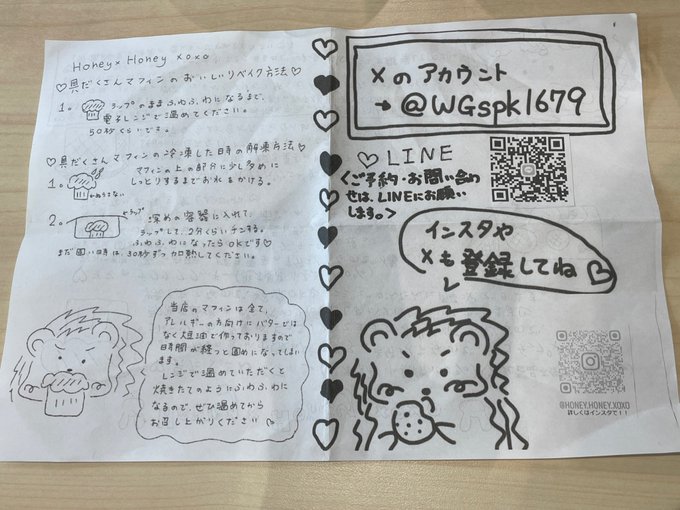 Honey×Honey xoxo
♡具だくさんマフィンのおいしいリベイク方法♡
1。ラップのままふわふわになるまで、
電子レンジで温めてください。
50秒くらいです。
♡具だくさんマフィンの冷凍した時の解凍方法♡
1。マフィンの上の部分に少し多めに
しっとりするまでお水をかける。
2。深めの容器に入れて、
ラップして、2分くらいチンする。
ふわふわになったらOKです♡
まだ固い時は、30秒ずつ加熱してください。
当店のマフィンは全て、
アレルギーの方向けにバターでは
なく太白油で作っておりますので
時間が経つと固めになってしまい
ます。
レンジで温めていただくと
焼きたてのようにふわふわに
なるので、ぜひ温めてから
お召し上がりください♡
Xのアカウント
→@WGspk1679
♡LINE
<ご予約・お問い合わ
せは、LINEにお願い
します。>
インスタや
Xも登録してね♡
@HONEY.HONEY.XOXO
詳しくはインスタで!!